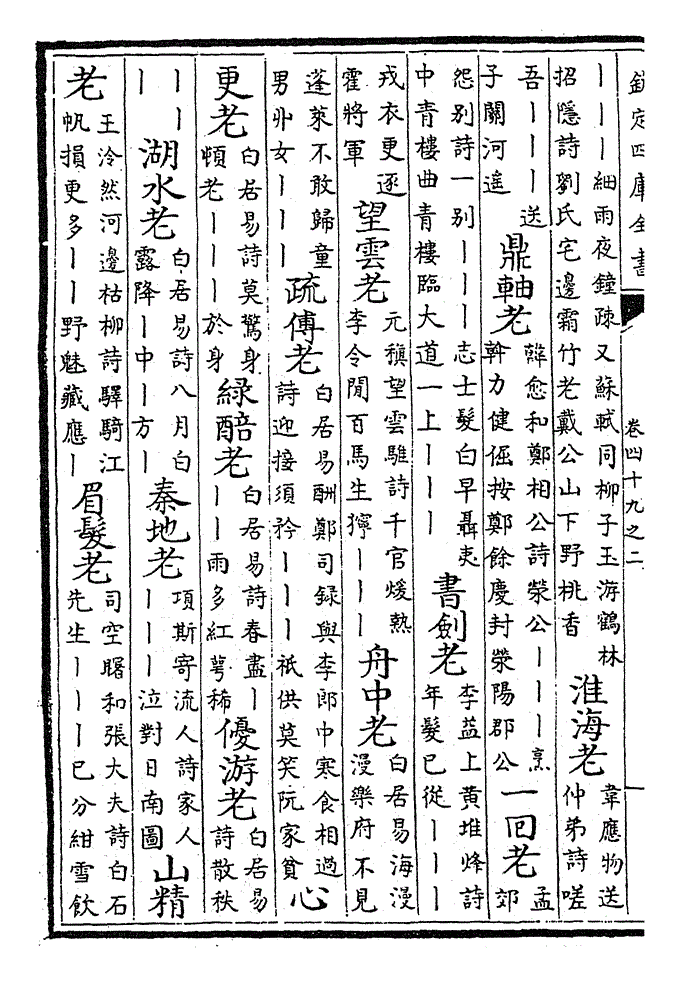 欽定四庫全書 卷四十九之二
丨丨丨細雨夜鐘疎又蘇軾同柳子玉游鶴林招隱詩劉氏宅邊霜竹老戴公山下野桃香 淮海老 韋應物送仲弟詩嗟
吾丨丨丨送子關河遥 鼎軸老 韓愈和鄭相公詩滎公丨丨丨烹斡力健倔按鄭餘慶封滎陽郡公 一回老 孟郊
怨别詩一别丨丨丨志士髮白早聶夷中青樓曲青樓臨大道一上丨丨丨 書劍老 李益上黄堆烽詩年髮已從丨丨丨
戎衣更逐霍將軍 望雲老 元稹望雲騅詩千官煖熟李令閒百馬生獰丨丨丨 舟中老 白居易海漫漫樂府不見
蓬萊不敢歸童男丱女丨丨丨 疏傅老 白居易酬鄭司録與李郎中寒食相過詩迎接須矜丨丨丨祇供莫笑阮家貧 心
更老 白居易詩莫驚身頓老丨丨丨於身 綠醅老 白居易詩春盡丨丨丨雨多紅萼稀 優游老 白居易詩散秩
丨丨丨 湖水老 白居易詩八月白露降丨中丨方丨 秦地老 項斯寄流人詩家人丨丨丨泣對日南圖 山精
老 王泠然河邊枯柳詩驛騎江帆損更多丨丨野魅藏應丨 眉髮老 司空曙和張大夫詩白石先生丨丨丨已分紺雪飲